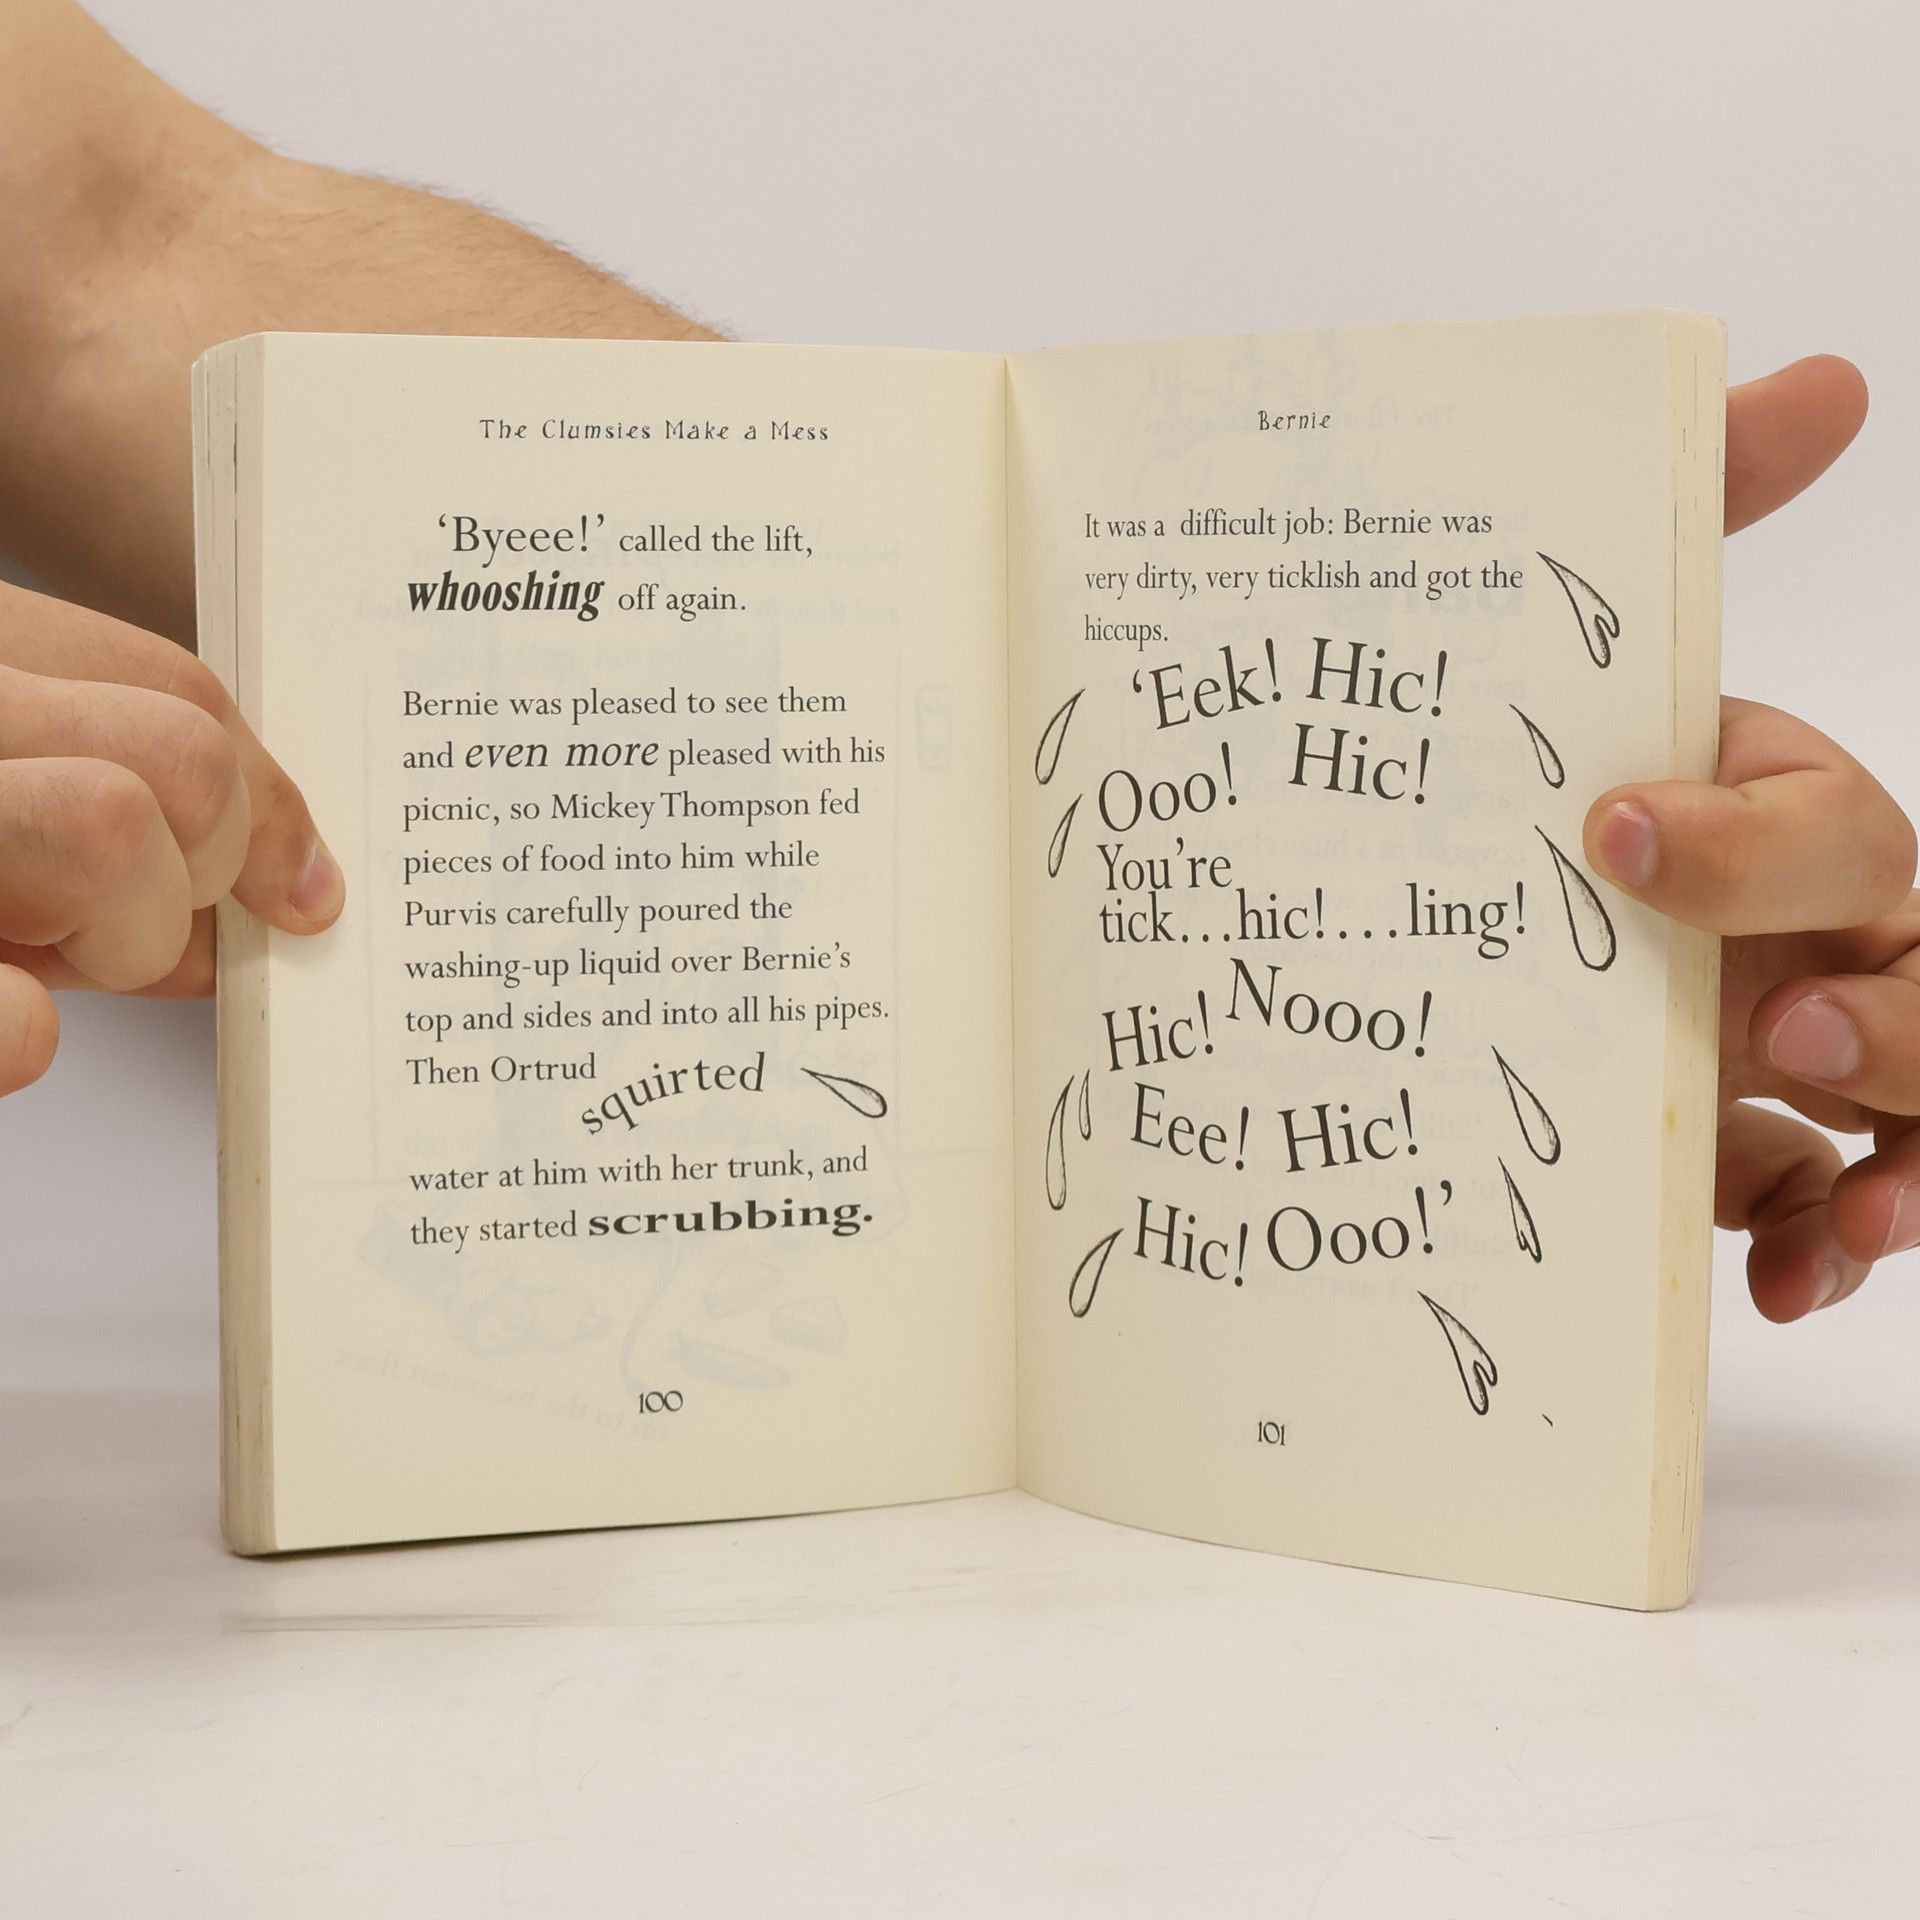 The Clumsies Make a Mess
‘Byeee!’ called the lift,
whooshing off again.
Bernie was pleased to see them
and even more pleased with his
picnic, so Mickey Thompson fed
pieces of food into him while
Purvis carefully poured the
washing-up liquid over Bernie’s
top and sides and into all his pipes.
Then Ortrud squirted
water at him with her trunk, and
they started scrubbing.
100
Bernie
It was a difficult job: Bernie was
very dirty, very ticklish and got the
hiccups.
‘Eek! Hic!
Ooo! Hic!
You’re
tick...hic!...ling!
Hic! Nooo!
Eee! Hic!
Hic! Ooo!’
101